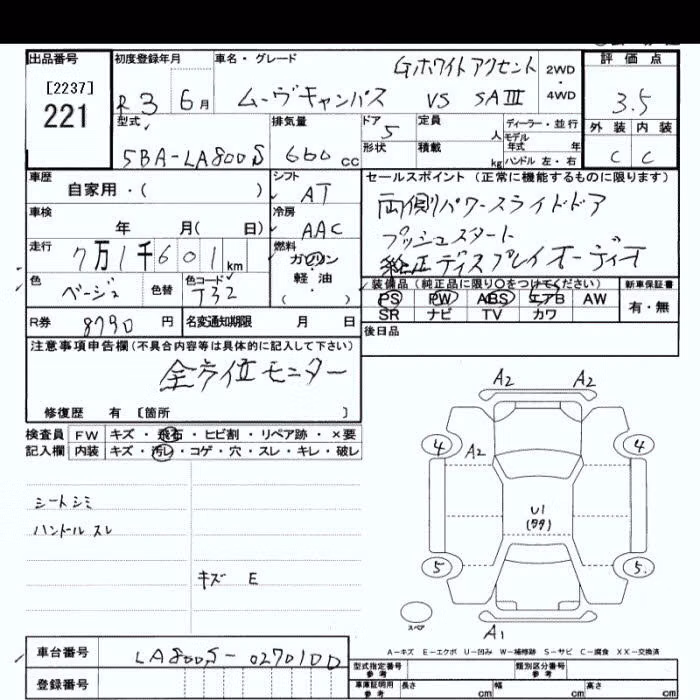 出品番号
[2237]
221
初度登録年月
R 3 6 月
車名・グレード
Gホワイトアクセント
ムーヴキャンバス VS SAⅢ
2WD
・
4WD
評価点
3.5
外装 内装
C C
型式
5BA-LA800S
排気量
660 cc
ドア
5
定員
人
形状
積載
kg
ディーラー・並行
モデル
年式 年
ハンドル 左・右
車歴
自家用・( )
シフト
AT
車検
年 月( 日)
冷房
AAC
走行
7万1千601 km
燃料
ガソリン
・
軽油
色
ベージュ
色替
色コード
T32
R券
8790 円
名変通知期限 月 日
セールスポイント (正常に機能するものに限ります)
両側パワースライドドア
プッシュスタート
純正ディスプレイオーディオ
装備品 (純正品に限り○をつけてください)
PS PW ABS エアB AW
SR ナビ TV カワ
新車保証書
有・無
後日品
注意事項申告欄(不具合内容等は具体的に記入して下さい)
全方位モニター
修復歴 有 [箇所 ]
検査員
記入欄
FW キズ・飛石・ヒビ割・リペア跡・×要
内装 キズ・汚レ・コゲ・穴・スレ・キレ・破レ
シートシミ
ハンドル スレ
キズ E
A2 A2
4 4
A2
U1
5 5
スペア
A1
A-キズ E-エクボ U-凹み W-補修跡 S-サビ C-腐食 XX-交換済
車台番号
LA800S-0270100
登録番号
型式指定番号
参考
類別区分番号
参考
車庫証明用
参考
長さ cm 幅 cm 高さ cm